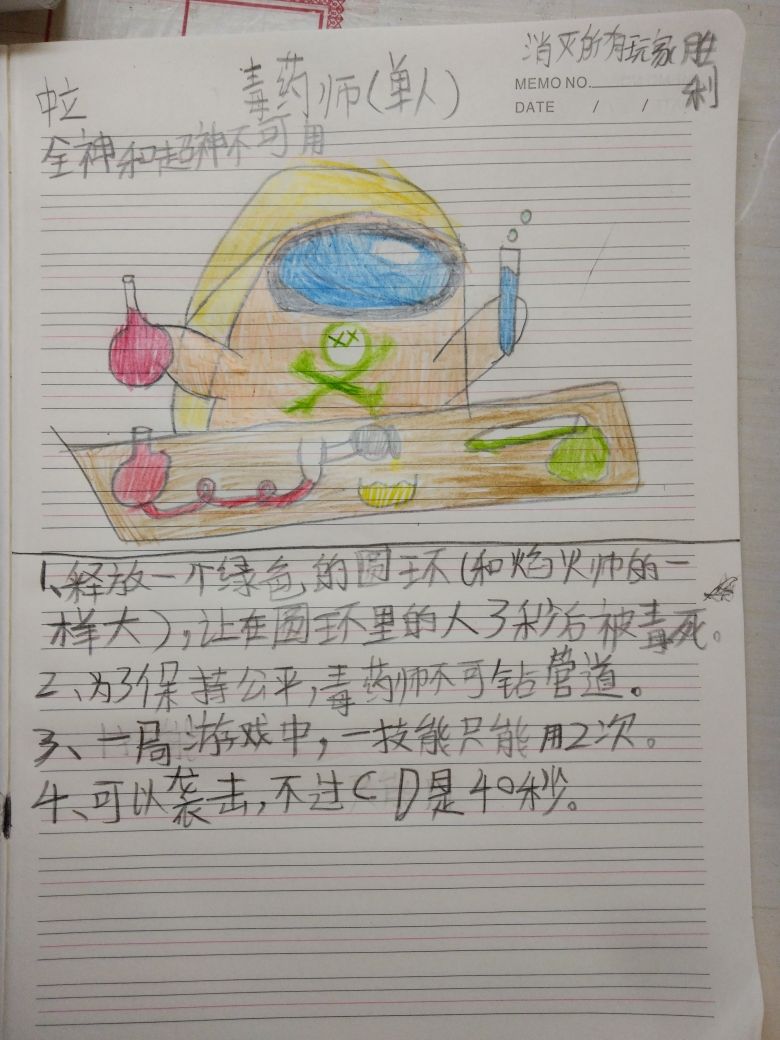 消灭所有玩家胜
利
MEMO NO.
DATE / /
中立 毒药师(单人)
全神和超神不可用
1、释放一个绿色的圆环(和焰火帅的一
样大),让在圆环里的人3秒后被毒死。
2、为了保持公平,毒药师不可钻管道。
3、一局游戏中,一技能只能用2次。
4、可以袭击,不过CD是40秒。